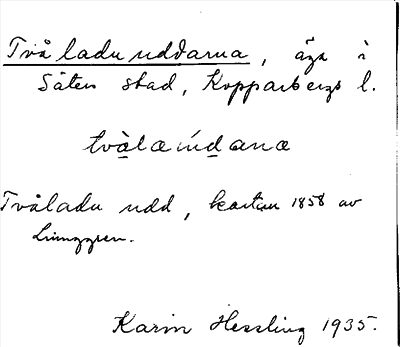 Två ladu uddarna, äga i
Säters stad, Kopparbergs l.
tvålæúdana
Tvåladu udd, kartan 1858 av
Ljunggren.
Karin Hessling 1935.